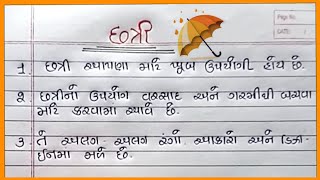 છત્રી
Page No.
Date
1 છત્રી આપણા માટે ખૂબ ઉપયોગી હોય છે.
2 છત્રીનો ઉપયોગ વરસાદ અને ગરમીથી બચવા
માટે કરવામા આવે છે.
3. તે અલગ - અલગ રંગો, આકારો અને ડિઝા-
ઈનમા મળે છે.